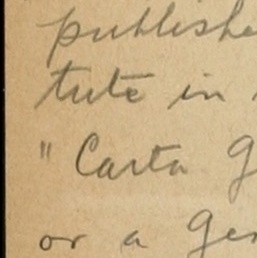 publishe
tute in
" Carta G
or a Gen